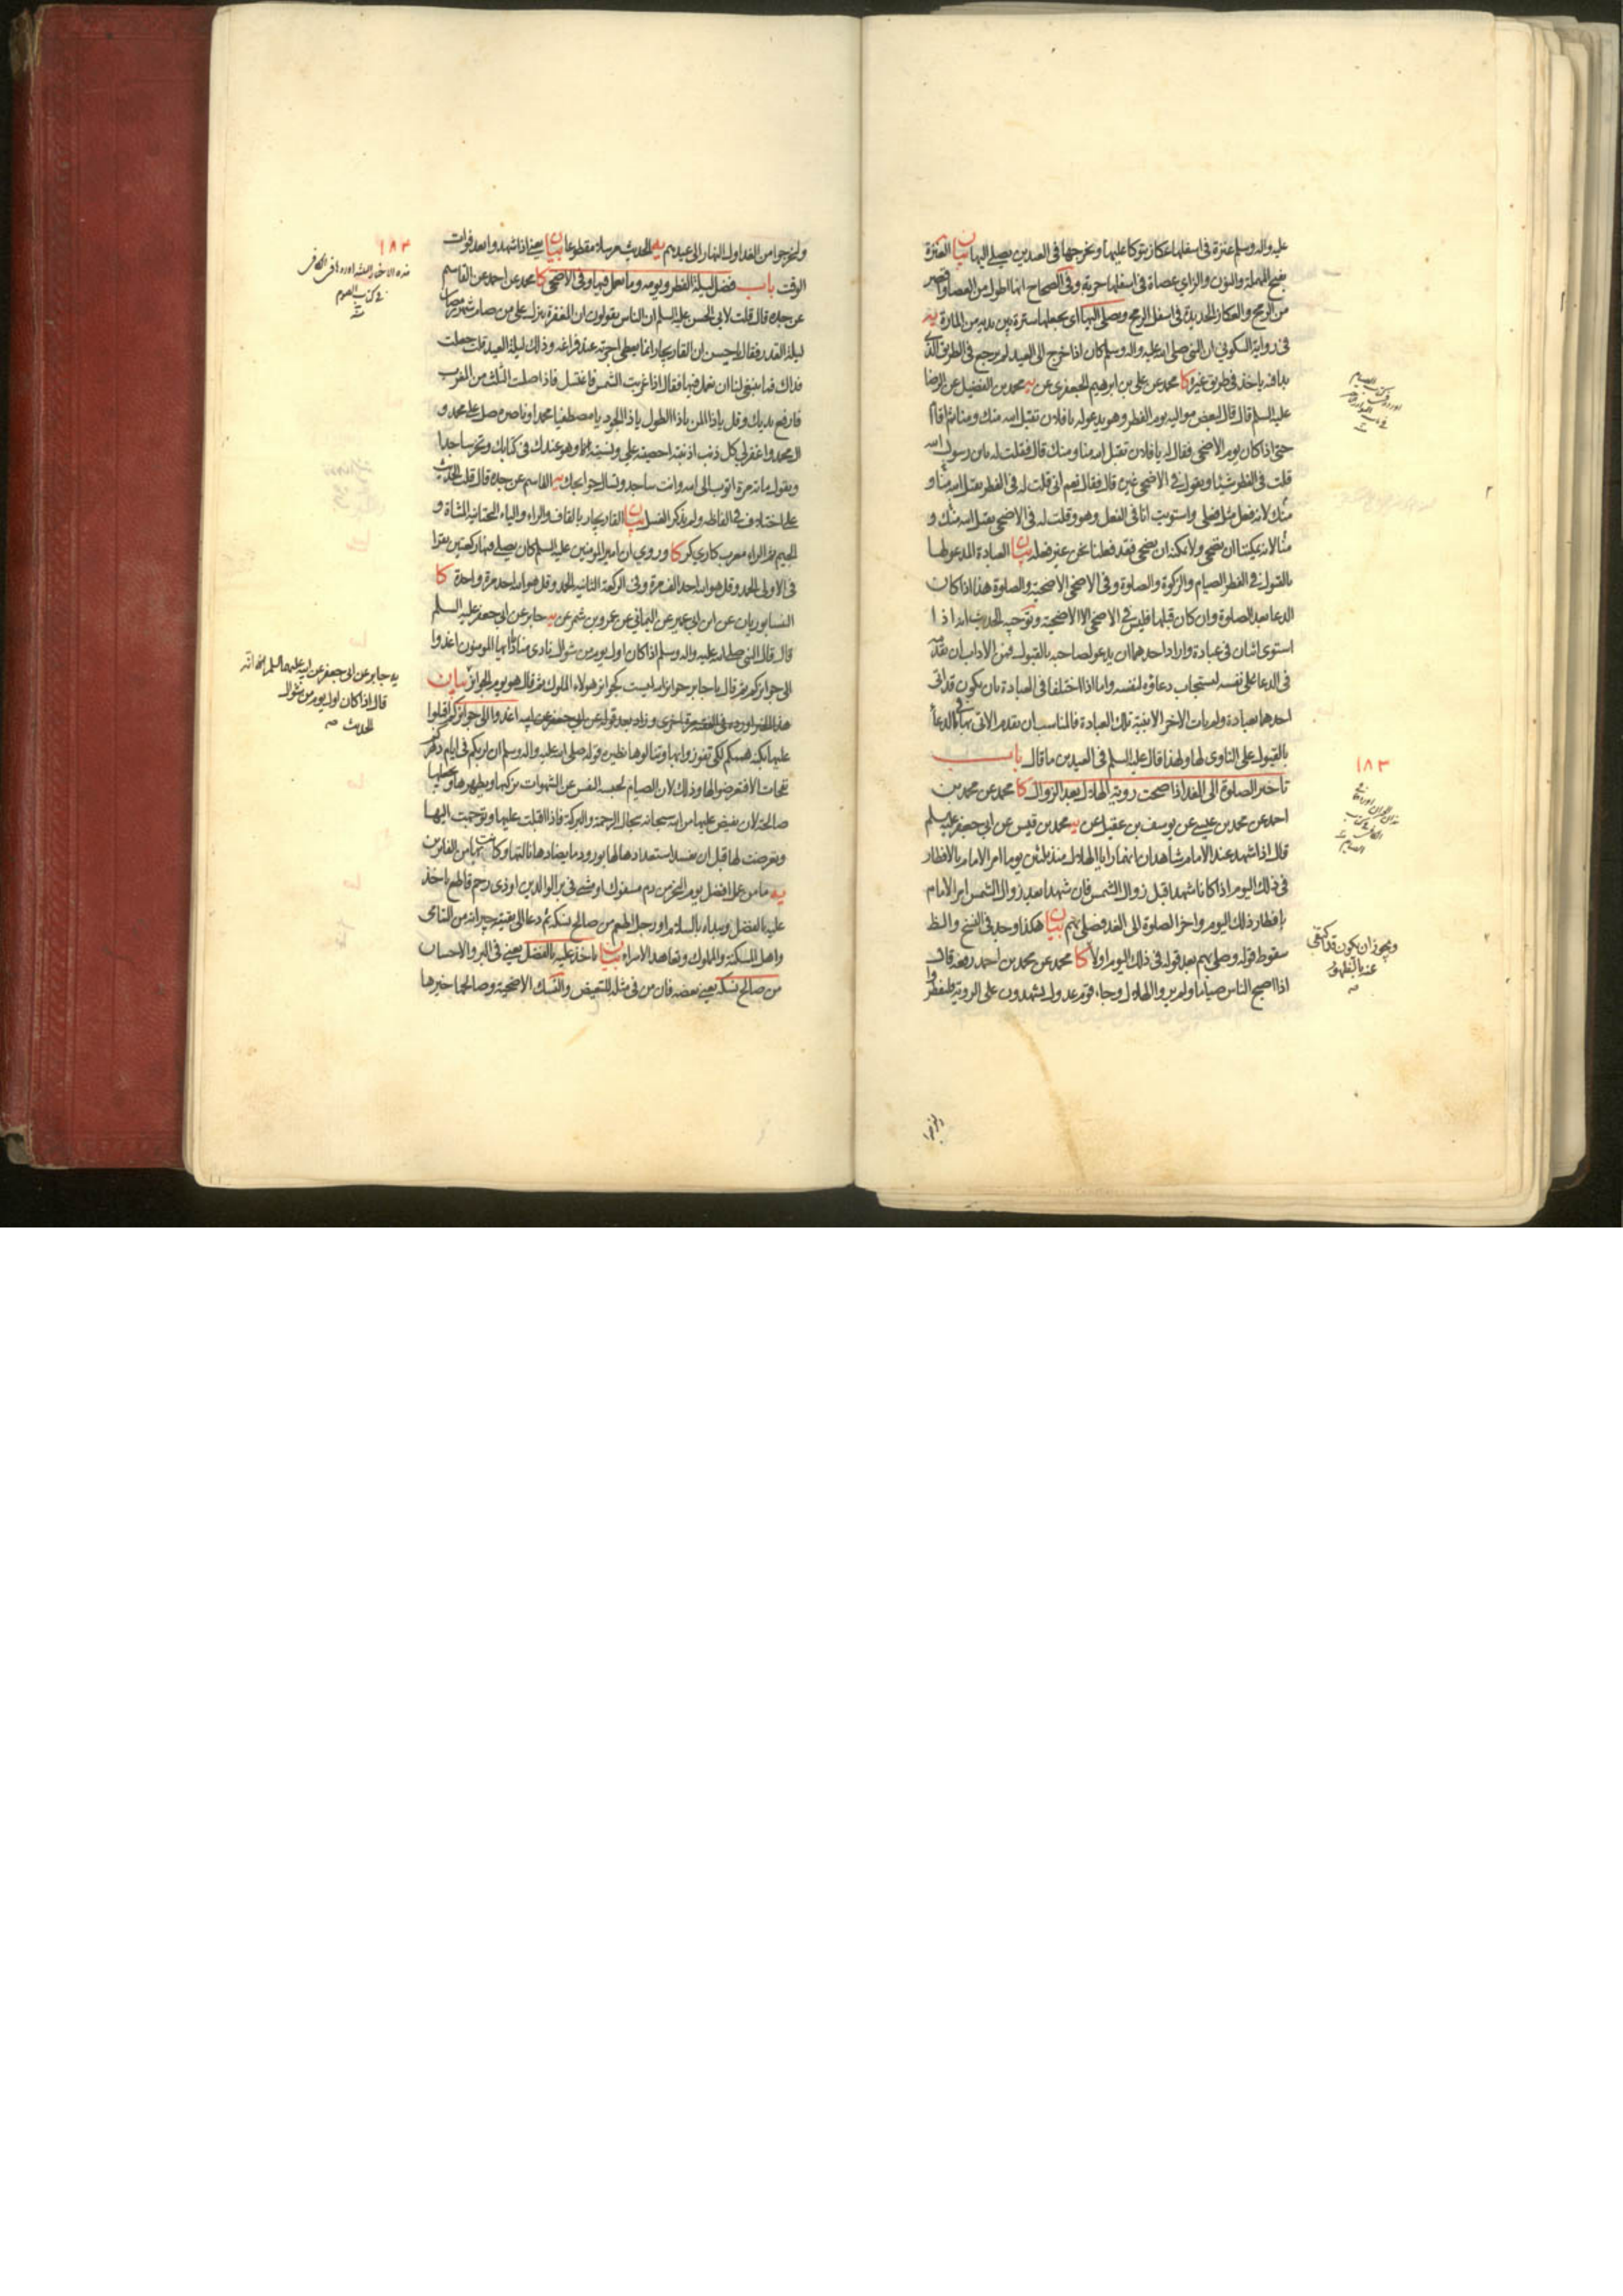 عليه واله وسلم عنزة فى اسفلها عكاز يتوكا عليها ويخرجها فى العيدين يصلى اليها بيان العنزة
بفتح المهملة والنون والزاى عصاة فى اسفلها حربة وفى الصحاح انها اطول من العصا واقصر
من الرمح والعكاز الحديدة فى اسفل الرمح ويصلى اليها اى يجعلها سترة بين يديه من المارة يه
فى رواية السكونى ان النبى صلى الله عليه واله وسلم كان اذا خرج الى العيد لم يرجع فى الطريق الذى
بدا فيه ياخذ فى طريق غيره كا محمد عن على بن ابرهيم الجعفرى عن يه محمد بن الفضيل عن الرضا
عليه السلم قال قال لبعض مواليه يوم الفطر وهو يدعو له يا فلان تقبل الله منك ومنا ثم اقام
حتى اذا كان يوم الاضحى فقال له يا فلان تقبل الله منا ومنك قال فقلت له يابن رسول الله
قلت فى الفطر شيئا وتقول فى الاضحى غيره قال فقال نعم انى قلت له فى الفطر تقبل الله منا و
منك لانه فعل مثل فعلى واستويت انا فى الفعل وهو وقلت له فى الاضحى تقبل الله منك و
منا لانه يمكننا ان نضحى ولا يمكنه ان يضحى فقد فعلنا نحن غير فعله بيان العبادة المدعو لها
بالقبول فى الفطر الصيام والزكوة والصلوة وفى الاضحى الاضحية والصلوة هذا اذا كان
الدعا بعد الصلوة وان كان قبلها فليس فى الاضحى الا الاضحية وتوجيه الحديث انه اذا
استوى اثنان فى عبادة واراد احدهما ان يدعو لصاحبه بالقبول فمن الاداب ان يقدمه
فى الدعا على نفسه ليستجاب دعاؤه لنفسه واما اذا اختلفا فى العبادة بان يكون قد اتى
احدهما بعبادة ولم يات الاخر الا بنية تلك العبادة فالمناسب ان يقدم الاتى بها فى الدعا
بالقبول على الناوى لها ولهذا قال عليه السلم فى العيدين ما قال باب
تاخير الصلوة الى الغد اذا صحت روية الهلال بعد الزوال كا محمد عن محمد بن
احمد عن محمد بن عيسى عن يوسف بن عقيل عن يه محمد بن قيس عن ابى جعفر عليه السلم
قال اذا شهد عند الامام شاهدان انهما رايا الهلال منذ ثلثين يوما امر الامام بالافطار
فى ذلك اليوم اذا كانا شهدا قبل زوال الشمس فان شهدا بعد زوال الشمس امر الامام
بافطار ذلك اليوم واخر الصلوة الى الغد فصلى بهم بيان هكذا وجد فى النسخ والظ
سقوط قوله وصلى بهم بعد قوله فى ذلك اليوم اولا كا محمد عن محمد بن احمد رفعه قال
اذا اصبح الناس صياما ولم يروا الهلال وجاء قوم عدول يشهدون على الروية فليفطروا
١٨٣
ويجوز ان يكون قد اكتفى
عنه بالظهور
وليخرجوا
وليخرجوا من الغد اول النهار الى عيدهم يه الحديث مرسلا مقطوعا بيان يعنى اذا شهدوا بعد فوات
الوقت باب فضل ليلة الفطر ويومه وما يعمل فيها وفى الاضحى كا محمد عن احمد عن القاسم
عن جده قال قلت لابى الحسن عليه السلم ان الناس يقولون ان المغفرة تنزل على من صام شهر رمضان
ليلة القدر فقال يا حسن ان القاريجار انما يعطى اجرته عند فراغه وذلك ليلة العيد قلت جعلت
فداك فما ينبغى لنا ان نعمل فيها فقال اذا غربت الشمس فاغتسل فاذا صليت الثلث من المغرب
فارفع يديك وقل يا ذا المن يا ذا الطول يا ذا الجود يا مصطفيا محمدا وناصره صل على محمد و
ال محمد واغفر لى كل ذنب اذنبته احصيته على ونسيته انا وهو عندك فى كتابك وتخر ساجدا
وتقول مائة مرة اتوب الى الله وانت ساجد وتسال حوايجك يه القاسم عن جده قال قلت الحديث
على اختلاف فى الفاظه ولم يذكر الغسل بيان القاريجار بالقاف والراء والياء التحتانية المثناة و
الجيم ثم الراء معرب كاريكر كا وروى ان امير المومنين عليه السلم كان يصلى فيها ركعتين يقرا
فى الاولى الحمد وقل هو الله احد الف مرة وفى الركعة الثانية الحمد وقل هو الله احد مرة واحدة كا
النيسابوريان عن ابن ابى عمير عن اليمانى عن عمرو بن شمر عن يه جابر عن ابى جعفر عليه السلم
قال قال النبى صلى الله عليه واله وسلم اذا كان اول يوم من شوال نادى مناد ايها المومنون اغدوا
الى جوايزكم ثم قال يا جابر جوايز الله ليست كجوايز هولاء الملوك ثم قال هو يوم الجوايز بيان
هذا الخبر اورده فى الفقيه مرة اخرى وزاد بعد قوله عن ابى جعفر عن ابيه اغدوا الى جوايزكم اقبلوا
عليها بكنه هممكم لكى تفوزوا بها وتنالوها نظيره قوله صلى الله عليه واله وسلم ان لربكم فى ايام دهركم
نفحات الا فتعرضوا لها وذلك لان الصيام لحبسه النفس عن الشهوات يزكيها ويطهرها ويجعلها
صالحة لان يفيض عليها من الله سبحانه سجال الرحمة والبركة فاذا اقبلت عليها وتوجهت اليها
وتعرضت لها قبل ان يفسد استعدادها لها بورود ما يضادها نالتها وكانت بها من الفائزين
يه ما من عمل افضل يوم النحر من دم مسفوك او مشى فى بر الوالدين او ذى رحم قاطع ياخذ
عليه بالفضل ويبداه بالسلام او رجل اطعم من صالح نسكه ثم دعا الى بقيته جيرانه من اليتامى
واهل المسكنة والمملوك وتعاهد الاسراء بيان ياخذ عليه بالفضل يعنى فى البر والاحسان
من صالح نسكه يعنى بعضه فان من فى مثله للتبعيض والنسك الاضحية وصالحها خيرها
١٨٣
هذه الاخبار الثلثة اوردها فى الكافى
فى كتاب الصوم
يه جابر عن ابى جعفر عن ابيه عليهما السلم انه
قال اذا كان اول يوم من شوال
الحديث صه